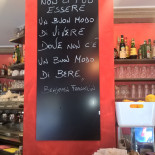 NON CI PUÒ
ESSERE
UN BUON MODO
DI VIVERE
DOVE NON C'È
UN BUON MODO
DI BERE.
BENJAMIN FRANKLIN